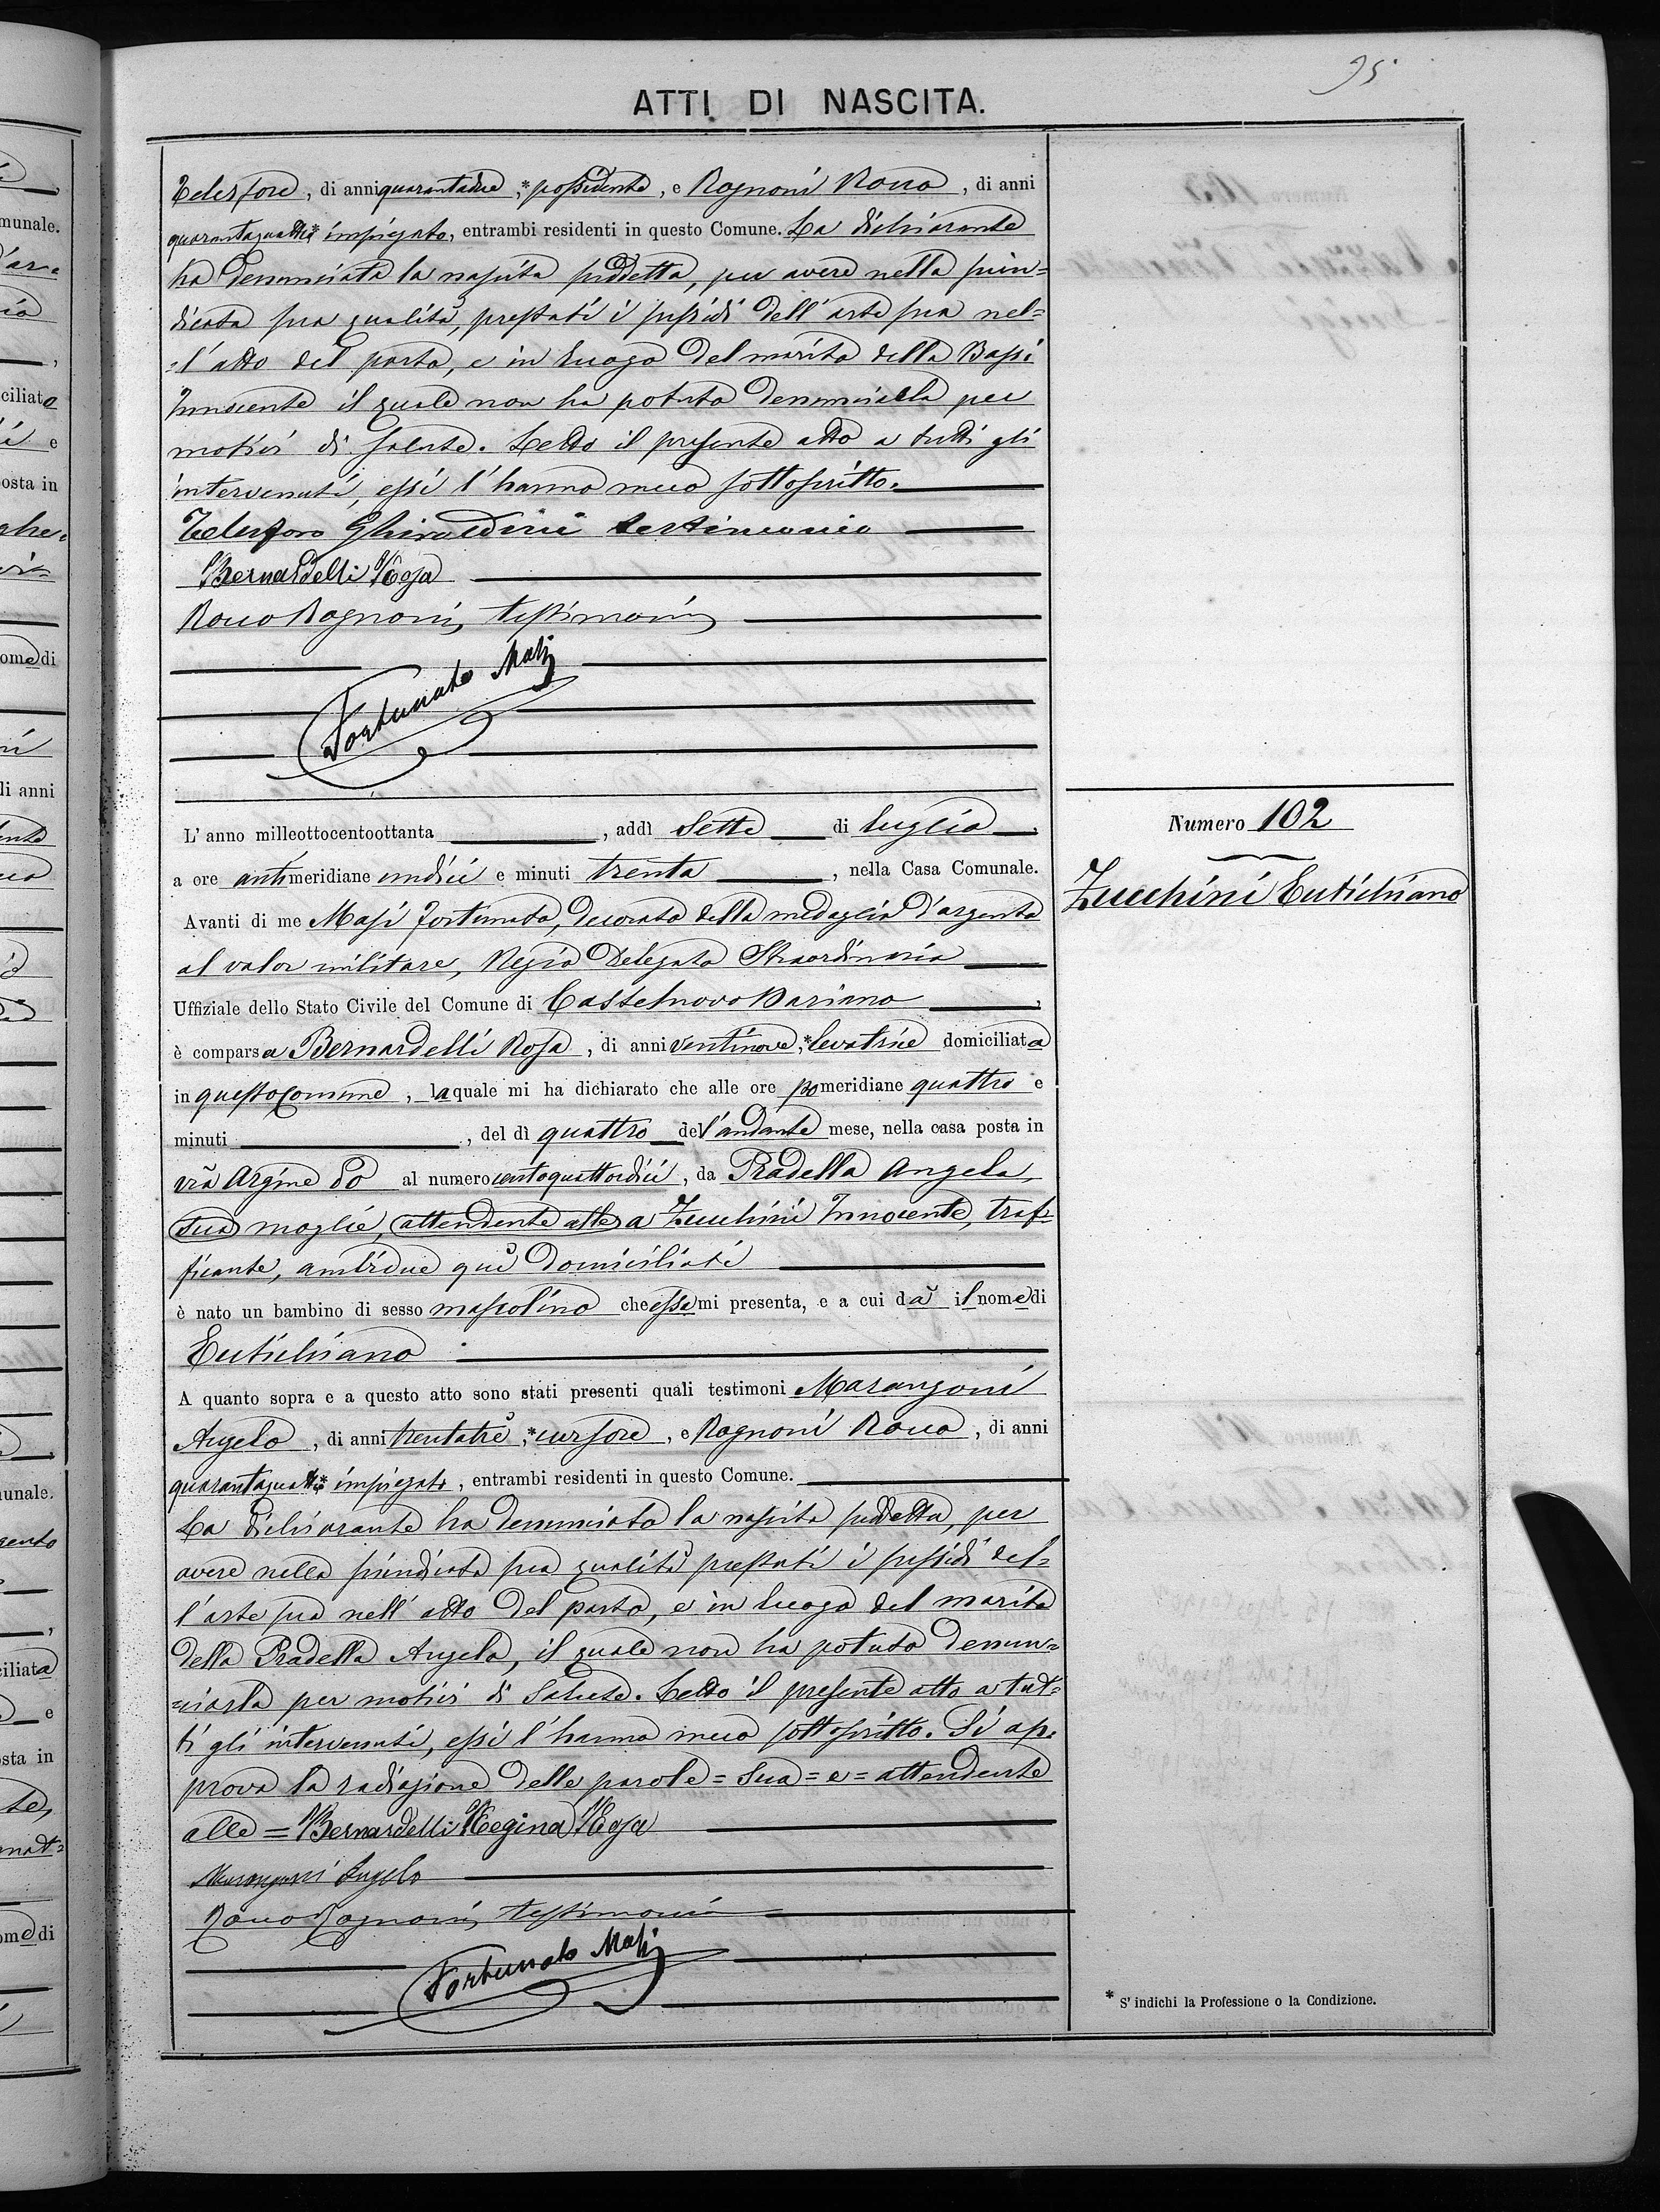 95
ATTI DI NASCITA.
Telesforo, di anni quarantadue,* possidente, e Rognoni Rocco, di anni
quarantaquattro* impiegato, entrambi residenti in questo Comune. La dichiarante
ha denunciata la nascita suddetta, per avere nella suin=
dicata sua qualità, prestati i sussidi dell'arte sua nel=
=l'atto del parto, e in luogo del marito della Bassi
Innocente il quale non ha potuto denunciarla per
motivi di salute. Letto il presente atto a tutti gli
intervenuti, essi l'hanno meco sottoscritto.
Telesforo Ghiraldini testimonio
Bernardelli Rosa
Rocco Rognoni, testimonio
Fortunato Masi
L'anno milleottocentoottanta, addì sette di luglio,
a ore antimeridiane undici e minuti trenta, nella Casa Comunale.
Avanti di me Masi Fortunato, decorato della medaglia d'argento
al valor militare, Regio Delegato Straordinario
Uffiziale dello Stato Civile del Comune di Castelnovo Bariano,
è comparsa Bernardelli Rosa, di anni ventinove,* levatrice domiciliata
in questo Comune, la quale mi ha dichiarato che alle ore pomeridiane quattro e
minuti, del dì quattro dell'andante mese, nella casa posta in
via Argine Po al numero centoquattordici, da Pradella Angela,
sua moglie, attendente alle a Zucchini Innocente, traf=
ficante, ambidue quì domiciliati
è nato un bambino di sesso mascolino che essa mi presenta, e a cui dà il nome di
Eutichiano
A quanto sopra e a questo atto sono stati presenti quali testimoni Marangoni
Angelo, di anni trentatrè,* cursore, e Rognoni Rocco, di anni
quarantaquattro* impiegato, entrambi residenti in questo Comune.
La dichiarante ha denunciato la nascita suddetta, per
avere nella suindicata sua qualità prestati i sussidi del=
l'arte sua nell'atto del parto, e in luogo del marito
della Pradella Angela, il quale non ha potuto denun=
=ciarla per motivi di salute. Letto il presente atto a tut=
ti gli intervenuti, essi l'hanno meco sottoscritto. Si ap=
prova la radiazione delle parole = Sua = e = attendente
alle = Bernardelli Regina Rosa
Marangoni Angelo
Rocco Rognoni, testimonio
Fortunato Masi
Numero 102
Zucchini Eutichiano
* S'indichi la Professione o la Condizione.